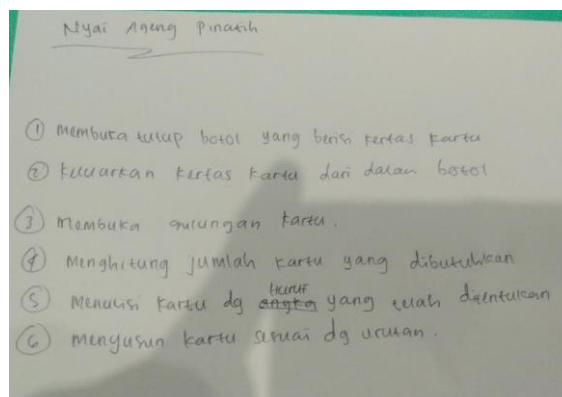 Nyai Ageng Pinatih
① Membuka tutup botol yang berisi kertas kartu
② Keluarkan kertas kartu dari dalam botol
③ Membuka gulungan kartu.
④ Menghitung jumlah kartu yang dibutuhkan
⑤ Menulisi kartu dg angka huruf yang telah ditentukan
⑥ Menyusun kartu sesuai dg urutan.